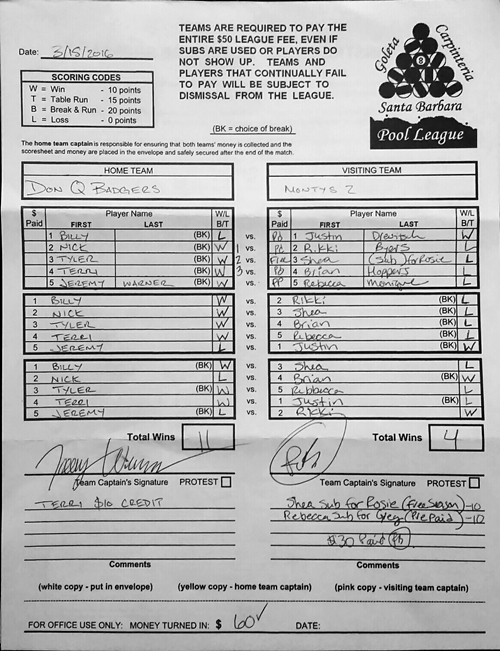 TEAMS ARE REQUIRED TO PAY THE
ENTIRE $50 LEAGUE FEE, EVEN IF
SUBS ARE USED OR PLAYERS DO
NOT SHOW UP. TEAMS AND
PLAYERS THAT CONTINUALLY FAIL
TO PAY WILL BE SUBJECT TO
DISMISSAL FROM THE LEAGUE.
Goleta Carpinteria
Santa Barbara
Pool League
Date: 3/15/2016
SCORING CODES
W = Win - 10 points
T = Table Run - 15 points
B = Break & Run - 20 points
L = Loss - 0 points
(BK = choice of break)
The home team captain is responsible for ensuring that both teams' money is collected and the
scoresheet and money are placed in the envelope and safely secured after the end of the match.
HOME TEAM VISITING TEAM
DON Q BADGERS MONTYS 2
$ Paid Player Name FIRST LAST W/L B/T $ Paid Player Name FIRST LAST W/L B/T
1 BILLY (BK) L vs. Pd 1 Justin W
2 NICK (BK) W 1 vs. Pd 2 Rikki Byers L
3 TYLER (BK) W 2 vs. Free 3 Shea (Sub) for Rosie L
4 TERRI (BK) W 3 vs. Pd 4 Brian Hoppers L
5 JEREMY WARNER (BK) W vs. PP 5 Rebecca Monique L
1 BILLY W vs. 2 Rikki (BK) L
2 NICK W vs. 3 Shea (BK) L
3 TYLER W vs. 4 Brian (BK) L
4 TERRI W vs. 5 Rebecca (BK) L
5 JEREMY L vs. 1 Justin (BK) W
1 BILLY (BK) W vs. 3 Shea L
2 NICK L vs. 4 Brian (BK) W
3 TYLER (BK) W vs. 5 Rebbecca L
4 TERRI W vs. 1 Justin (BK) L
5 JEREMY (BK) L vs. 2 Rikki W
Total Wins 11 Total Wins 4
Team Captain's Signature PROTEST Team Captain's Signature PROTEST
TERRI $10 CREDIT Shea Sub for Rosie (Free Season) -10
Rebecca Sub for Greg (Pre Paid) -10
$30 Paid Pb
Comments Comments
(white copy - put in envelope) (yellow copy - home team captain) (pink copy - visiting team captain)
FOR OFFICE USE ONLY: MONEY TURNED IN: $ 60 ✓ DATE: